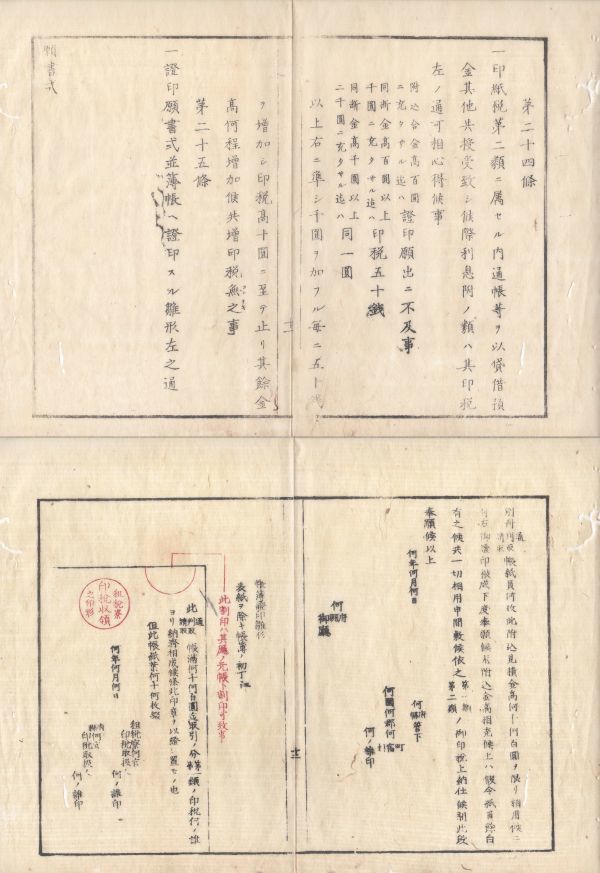 第二十四條
一印紙税第二類ニ属セル内通帳等ヲ以貸借預
金其他共授受致シ候際利息附ノ類ハ其印税
左ノ通可相心得候事
附込合金高百圓
ニ充タサル迄ハ
證印願出ニ不及事
同断金高百圓以上
千圓ニ充タサル迄ハ
印税五十錢
同断金高千圓以上
二千圓ニ充タサル迄ハ
同一圓
以上右ニ準シ千圓ヲ加フル毎ニ五十錢
ヲ増加シ印税高十圓ニ至テ止リ其餘金
高何程増加候共増印税無之事
第二十五條
一證印願書式並簿帳ヘ證印スル雛形左之通
願書式
帳紙員何枚此附込見積金高何十何百圓ヲ限リ相用候ニ
付右御證印被成下度奉願候若附込金高相充候上ハ假令紙員餘白
有之候共一切相用申間敷候依之
第一類
第二類
ノ御印税上納仕候別此段
奉願候以上
何年何月何日
何
府縣
管下
何國何郡何
町
宿
村
何ノ誰印
何
府縣
御廳
十二
簿帳證印雛形
表紙ヲ除キ帳簿ノ初丁江
此割印ハ其廳ノ元帳ト割印可致事
此
通
判取
請取
帳滿何十何百圓迄取引ノ分第
類ノ印税何ノ誰
ヨリ納濟相成候條此印章ヲ以證シ置モノ也
但此帳紙葉何十何枚綴
何年何月何日
租税寮何等
印税取扱人
何ノ誰印
府縣何等
印税取扱人
何ノ誰印
租税寮
印税收領
之印影